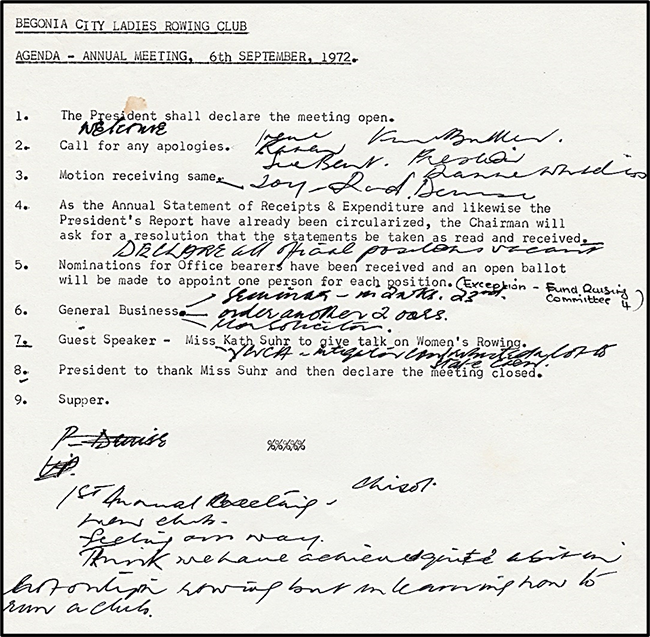 BEGONIA CITY LADIES ROWING CLUB
AGENDA - ANNUAL MEETING, 6th SEPTEMBER, 1972.
1. The President shall declare the meeting open.
Welcome
2. Call for any apologies.
3. Motion receiving same.
Joy -
4. As the Annual Statement of Receipts & Expenditure and likewise the
President's Report have already been circularized, the Chairman will
ask for a resolution that the statements be taken as read and received.
DECLARE all official positions vacant
5. Nominations for Office bearers have been received and an open ballot
will be made to appoint one person for each position. (Exception - Fund Raising
Committee 4)
Seminar -
6. General Business. order another 2 oars.
7. Guest Speaker - Miss Kath Suhr to give talk on Women's Rowing.
8. President to thank Miss Suhr and then declare the meeting closed.
9. Supper.
P - Denise
%%%%%
V.P.
1st Annual Meeting -
new club -
Feeling our way.
Think we have achieved quite a bit in
not only in rowing but in learning how to
run a club.